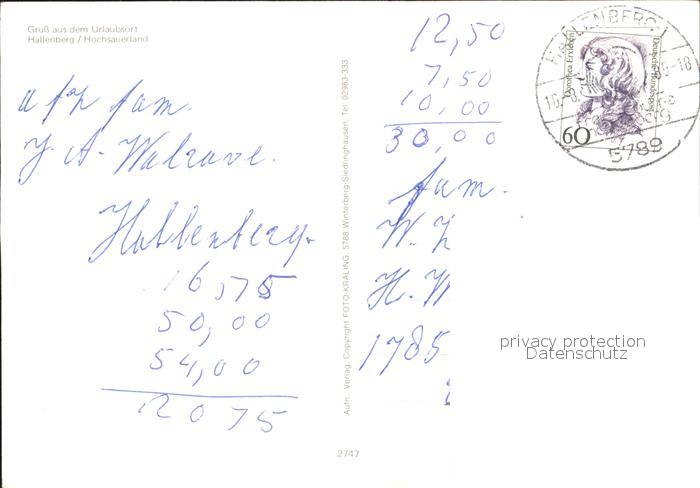 Gruß aus dem Urlaubsort
Hallenberg / Hochsauerland
afz fam.
J. A. Walrave.
Hallenberg.
16,75
50,00
54,00
12075
Aufn. Verlag, Copyright FOTO-KRALING, 5788 Winterberg-Siedlinghausen, Tel. 02983-333
2747
12,50
7,50
10,00
30,00
fam.
W.
H. W
1785
Dorothea Erxleben
Deutsche Bundespost
60
HALLENBERG
5789
privacy protection
Datenschutz